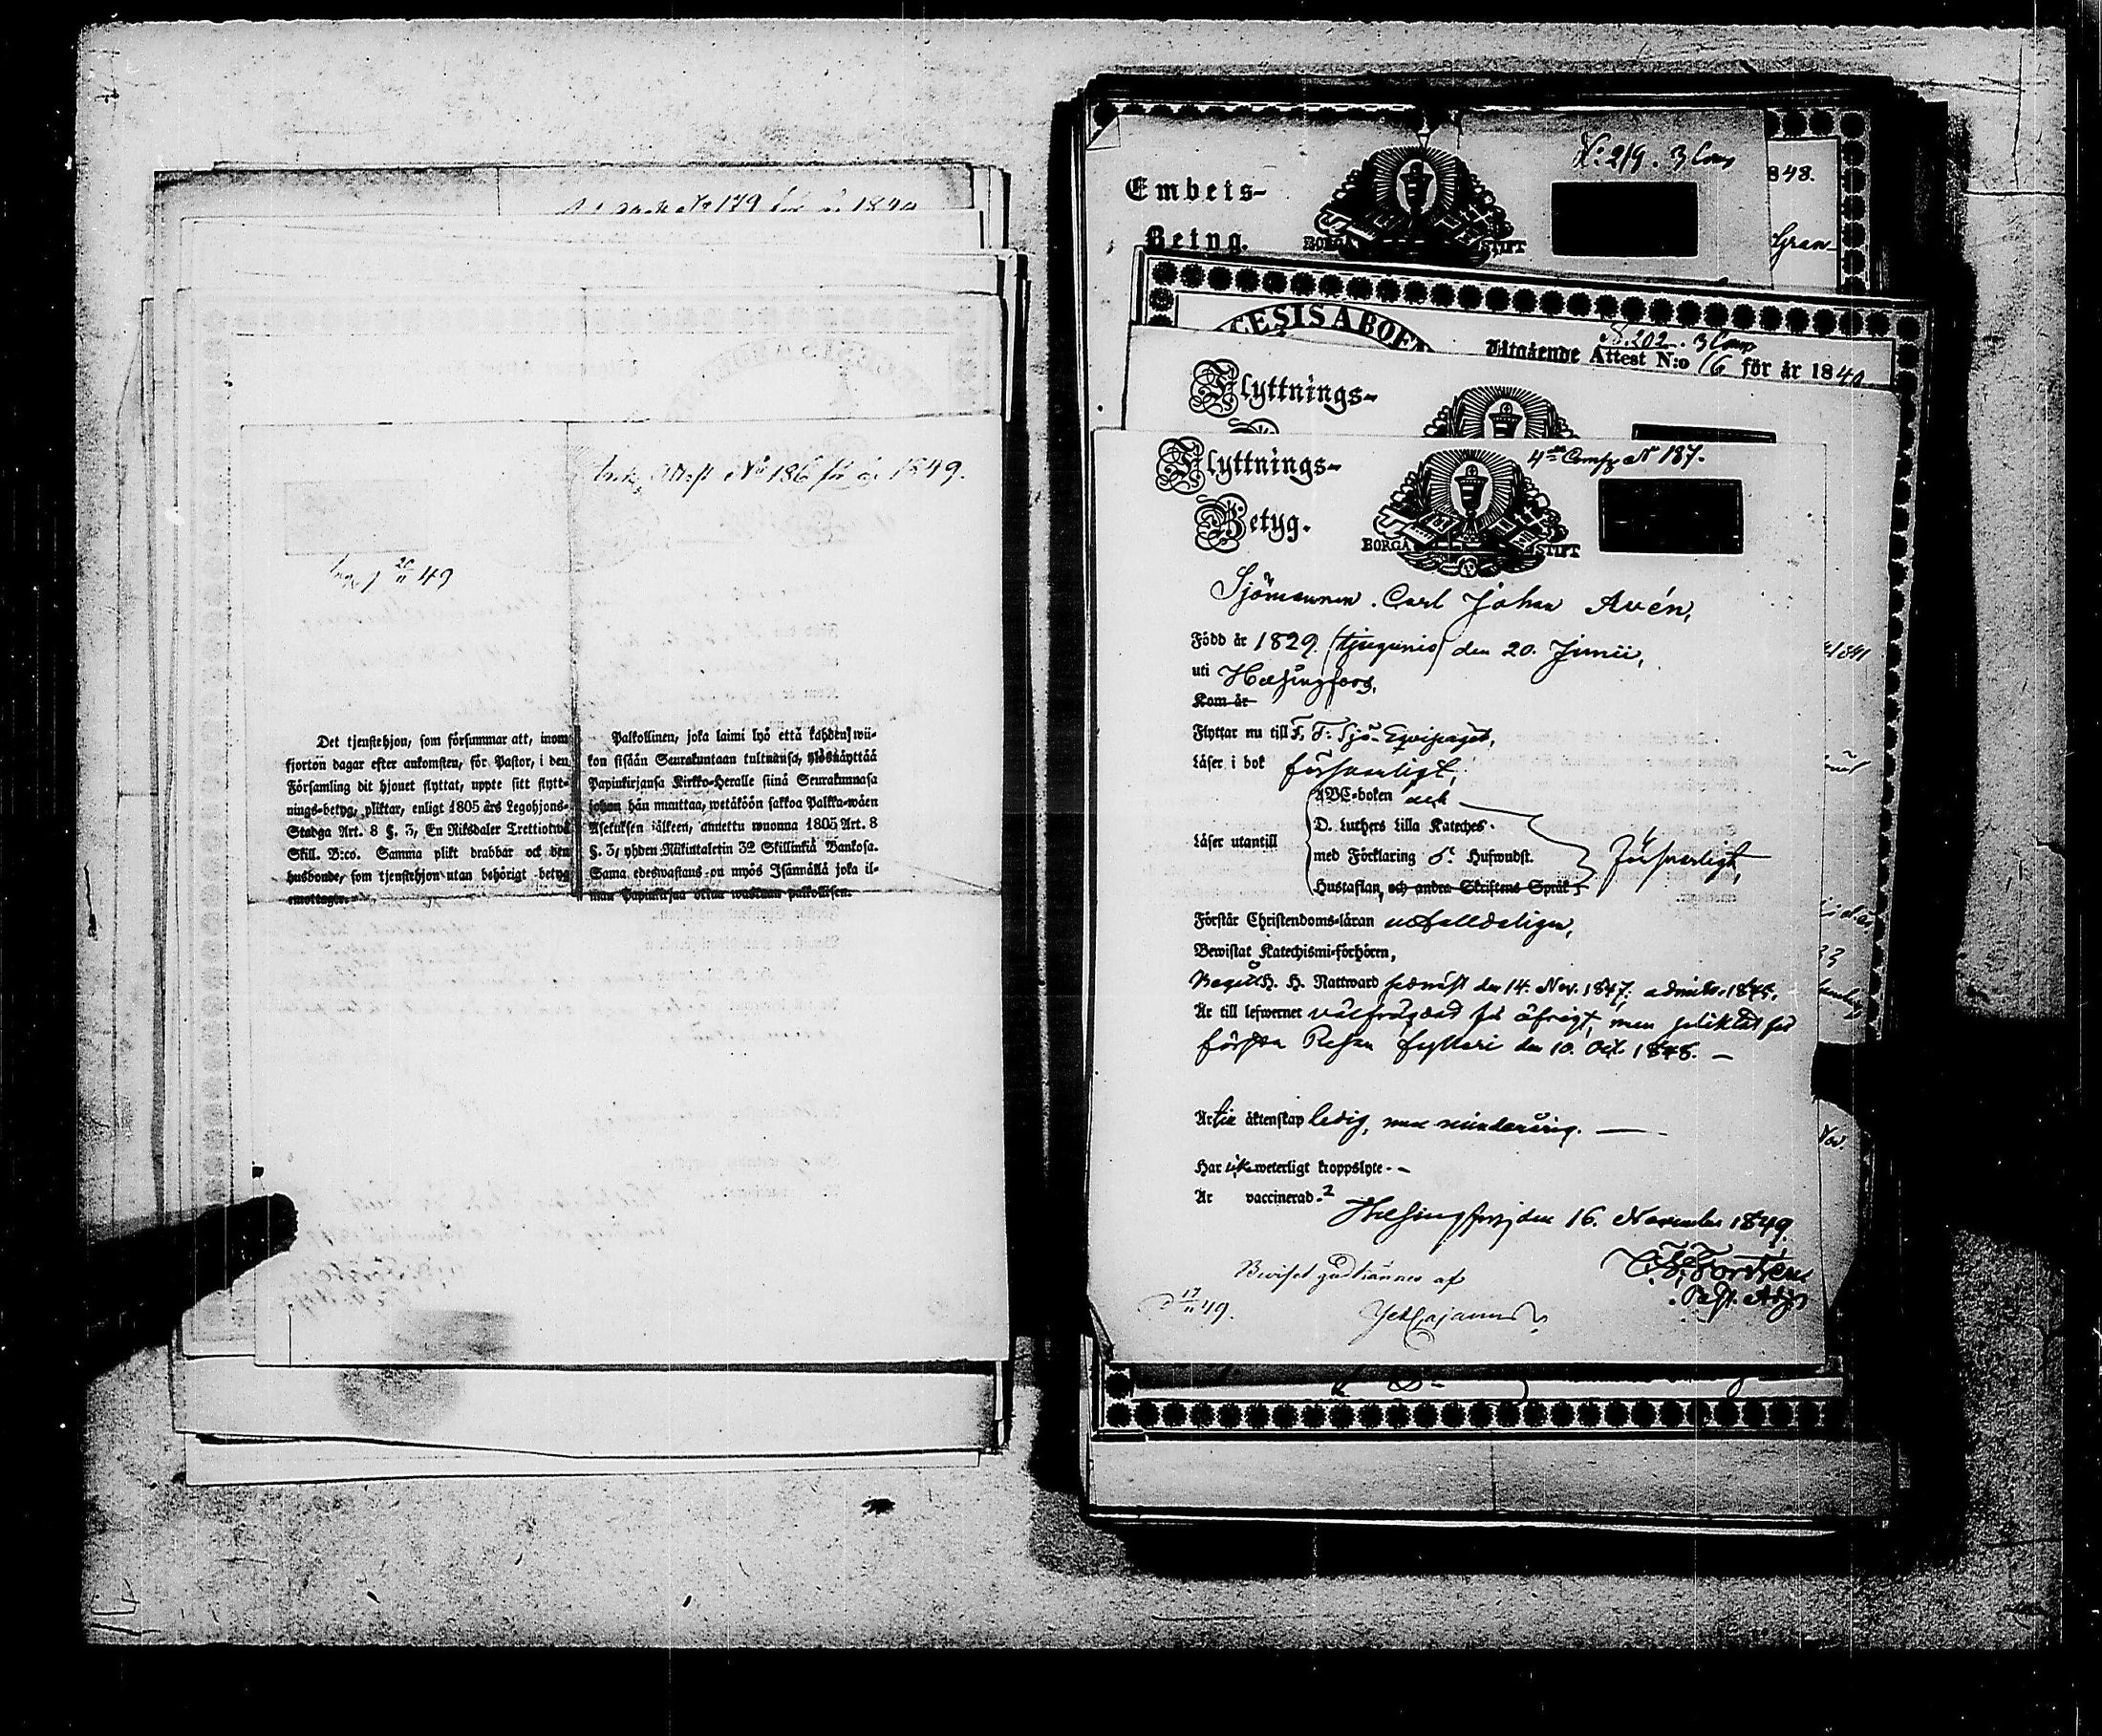 No 179 för år 1849
Ank. Attest No 186 för år 1849.
20/11 49
Det tjenstehjon, som försummar att, inom
fjorton dagar efter ankomsten, för Pastor, i den
Församling dit hjonet flyttat, uppte sitt flytt-
nings-betyg, pliktar, enligt 1805 års Legohjons-
Stadga Art. 8 §. 3, En Riksdaler Trettiotwå
Skill. B:co. Samma plikt drabbar ock den
husbonde, som tjenstehjon utan behörigt betyg
emottager.
Palkollinen, joka laimi lyö että kahden wii-
kon sisään Seurakuntaan tultuansa, ylösnäyttää
Papinkirjansa Kirkko-Heralle siinä Seurakunnasa
johon hän muuttaa, wetäköön sakkoa Palkka-wäen
Asetuksen jälkeen, annettu wuonna 1805 Art. 8
§. 3, yhden Riikintaletin 32 Skillinkiä Bankosa.
Sama edeswastaus on myös Isännällä joka il-
man Papinkirjaa ottaa wastaan palkollisen.
Embets-
Betyg.
BORGÅ STIFT
No 219. 3 Comp
848.
Gran-
CESIS ABOEN
No 202. 3 Comp
Utgående Attest N:o 16 för år 1840
Flyttnings-
Flyttnings-
Betyg.
BORGÅ STIFT
4de Comp. No 187.
Sjömannen Carl Johan Avén,
Född år 1829 (tjugunio) den 20. Junii,
uti Helsingfors,
Kom år
Flyttar nu till F. F. Sjö-Eqvipaget,
Läser i bok försvarligt,
Läser utantill
ABC-boken och
D. Luthers Lilla Kateches.
med Förklaring o. Hufwudst.
Hustaflan, och andra Skriftens Språk,
försvarligt,
Förstår Christendoms-läran nödtorftigen,
Bewistat Katechismi-förhören,
Begått H. H. Nattward sednast den 14. Nov. 1847, admitt. 1845.
Är till lefwernet välfrägdad för öfrigt, men pliktat för
första Resan fylleri den 10. Oct. 1848. —
Är till äktenskap ledig, men minderårig. —
Har icke weterligt kroppslyte. —
Är vaccinerad.
Helsingfors, den 16. November 1849.
C. F. Forstén
Past. Adj.
Beviset godkännes af
17/11 49.